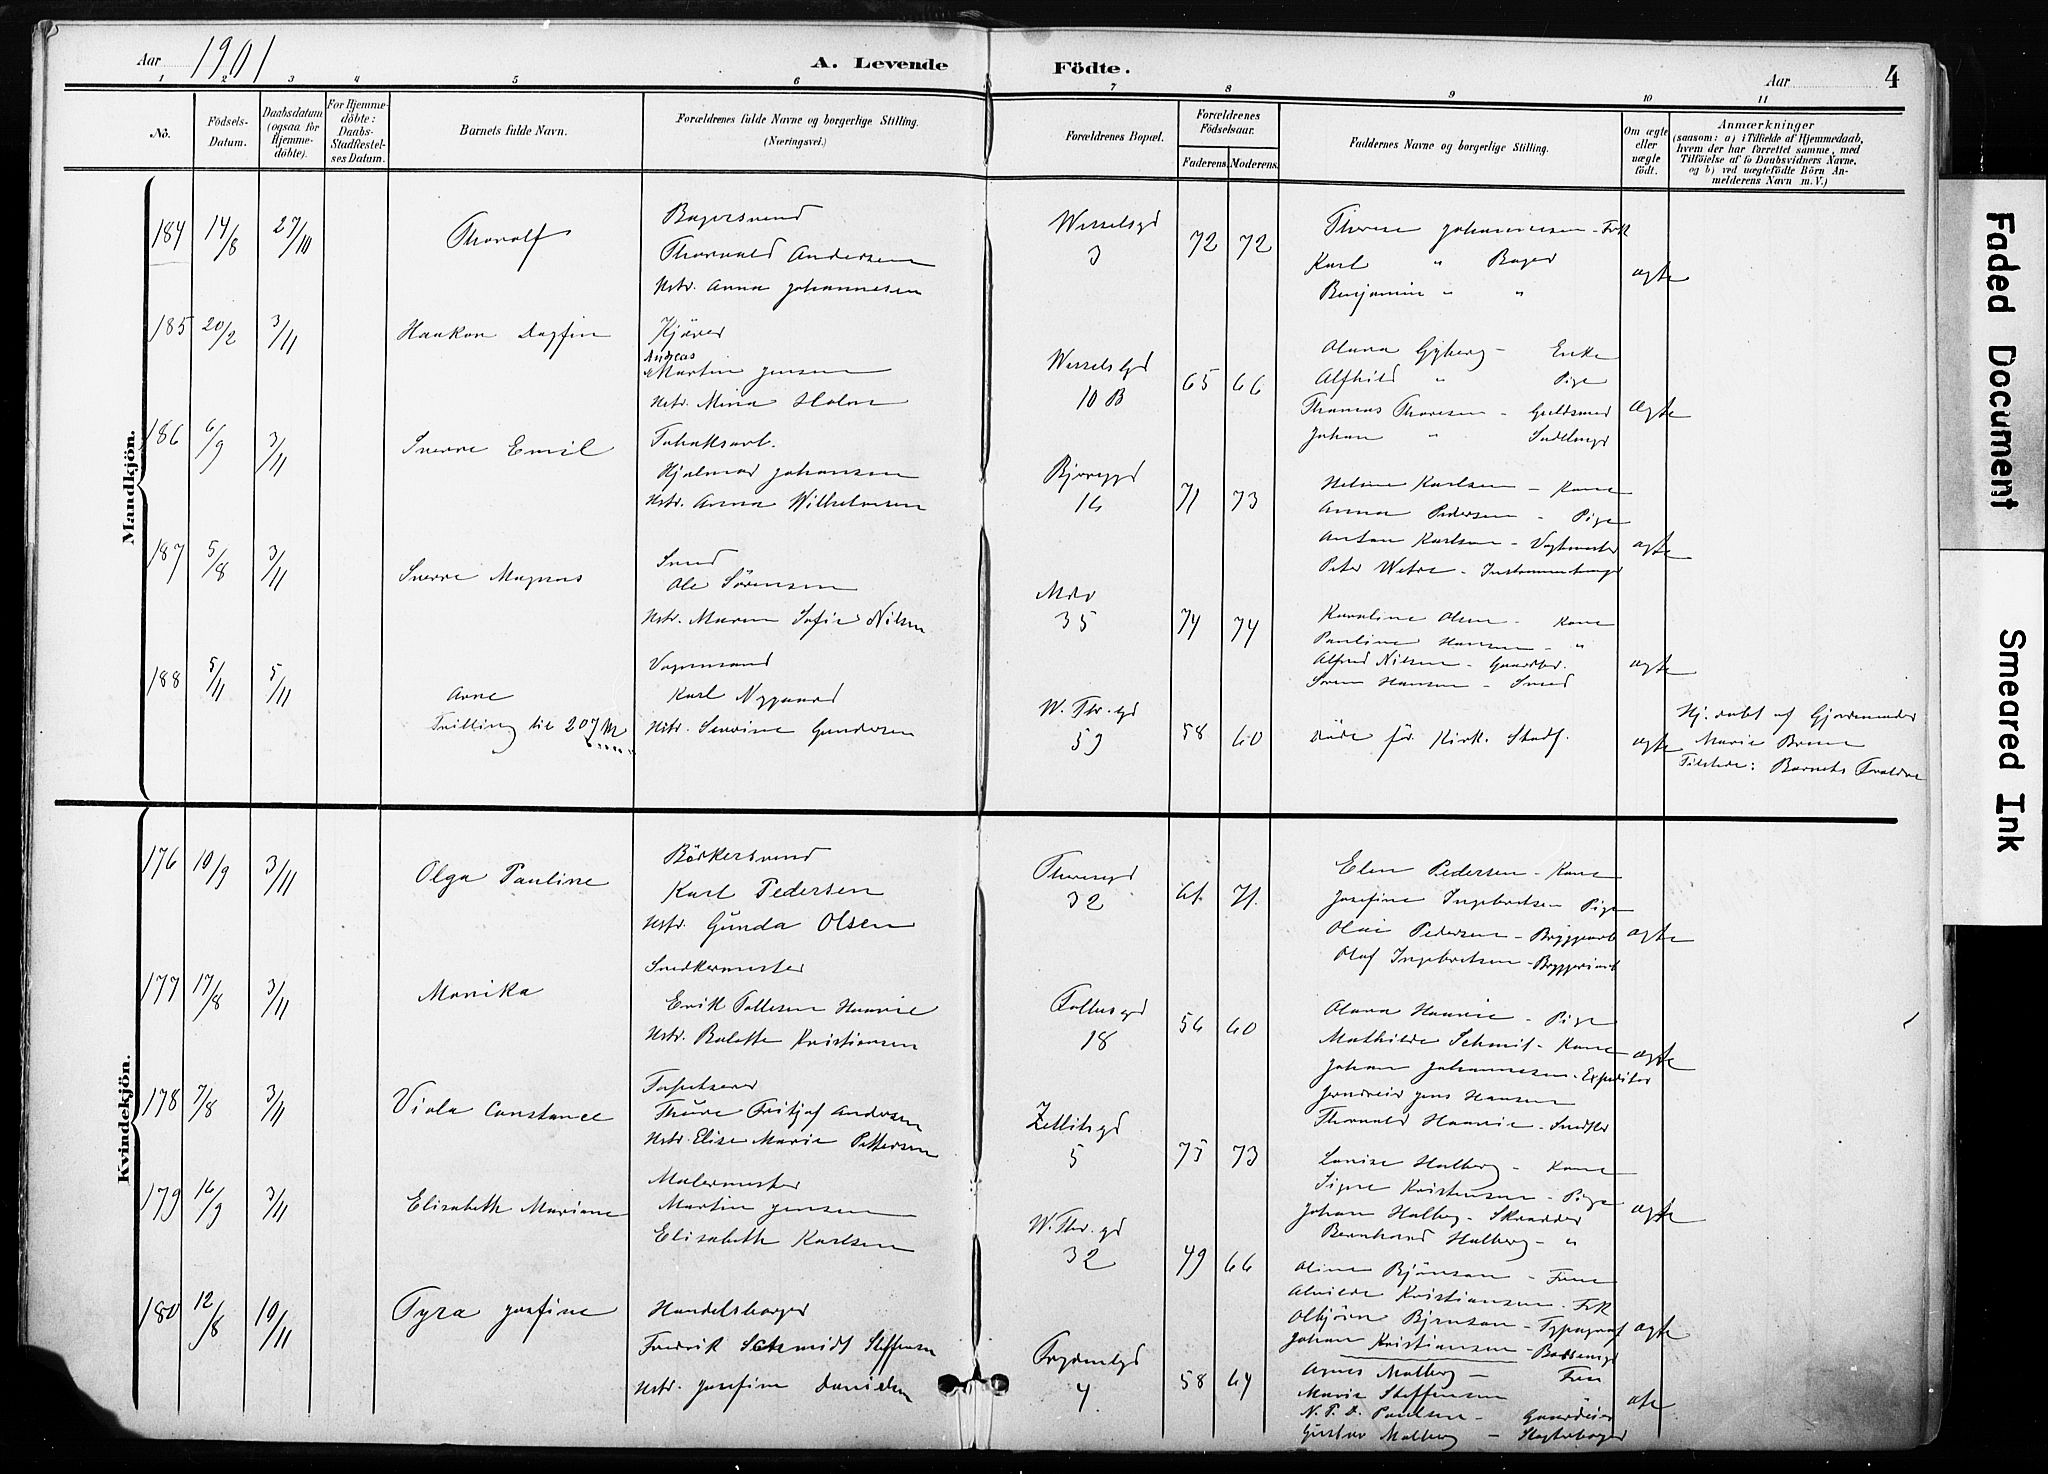 Aar 1901 A. Levende Födte. Aar 4
1 2 3 4 5 6 7 8 9 10 11
Nô. Födsels-Datum. Daabsdatum (ogsaa for Hjemme-döbte). For Hjemme-döbte: Daabs-Stadfæstel-ses Datum. Barnets fulde Navn. Forældrenes fulde Navne og borgerlige Stilling. (Næringsvei.) Forældrenes Bopæl. Forældrenes Födselsaar. Faderens. Moderens. Faddernes Navne og borgerlige Stilling. Om ægte eller uægte födt. Anmærkninger (saasom: a) i Tilfælde af Hjemmedaab, hvem der har forrettet samme, med Tilföielse af to Daabsvidners Navne. og b) ved uægtefödte Börn An-melderens Navn m. V.)
Mandkjön.
184 14/8 27/10 Thoralf
Bagersvend
Thorvald Andersen
Hstr. Anna Johannesen
Wesselsgd
3
72 72
Therese Johannesen - Frk
Karl " Bager
Benjamin " "
ægte
185 20/2 3/11 Haakon Dagfin
Kjører
Andreas
Martin Jensen
Hstr. Mina Holm
Wesselsgd
10 B
65 66
Olava Gyberg - Enke
Alfhild " Pige
Thomas Thoresen - Guldsmed
Johan "
ægte
186 6/9 3/11 Sverre Emil
Tobaksarb.
Hjalmar Johansen
Hstr. Anna Wilhelmsen
16
71 73
Karlsen - Kone
Anna Pedersen - Pige
Anton Karlsen - Vagtmester
Peter
ægte
187 5/8 3/11 Sverre Magnus
Smed
Ole Sörensen
Hstr. Maren Sofie Nilsen
35
74 74
Karoline Olsen - Kone
Pauline Hansen - "
Alfred Nilsen - Gaardbr.
Sören Hansen - Smed
ægte
188 5/11 5/11 Arne
Trilling til 207 M
Vognmand
Karl Nygaard
Hstr. Severine Gundersen
W. Thr. gd
59
58 60
döde för Kirk. Stadf.
ægte
Hj. döbt af Gjordemoder
Marie Bruun
Tilstede: Barnets Forældre
Kvindekjön.
176 10/9 3/11 Olga Pauline
Bödkersvend
Karl Pedersen
Hstr. Gunda Olsen
Theresgd
32
61. 71.
Elen Pedersen - Kone
Josefine Ingebretsen Pige
Olai Pedersen - Bryggearb
Olaf Ingebretsen - Bryggeriarb
ægte
177 17/8 3/11 Monika
Snedkermester
Erik Tollefsen Haavie
Hstr. Bolette Kristiansen
Falbesgd
18
56 60
Olava Haavie - Pige
Mathilde Schmit - Kone
Johan Johannesen - Expeditör
Jens Hansen
Thorvald Haavie - Snedker
ægte
178 7/8 3/11 Viola Constance
Tapetserer
Thure Fritjof Andersen
Hstr. Elise Marie Pettersen
Zetlitsgd
5
75 73
Lovise Halberg - Kone
Signe Kristensen - Pige
Johan Halberg - Skrædder
Bernhard Halberg - "
ægte
179 16/9 3/11 Elisabeth Mariane
Malermester
Martin Jensen
Elisabeth Karlsen
W. Thr. gd
32
49 66
Oline Björnson - Frue
Alvilde Kristiansen - Frk
Olbjörn Björnson - Typograf
Johan Kristiansen -
ægte
180 12/8 10/11 Tyra Josefine
Handelsborger
Fredrik Schmidt Steffensen
Hstr. Josefine Danielsen
Frydenlgd
4
58 64
Agnes Malberg - Frue
Marie Steffensen "
N. P. D. Paulsen - Gaardeier
Gustav Malberg - Slagterborger
ægte
Faded Document
Smeared Ink